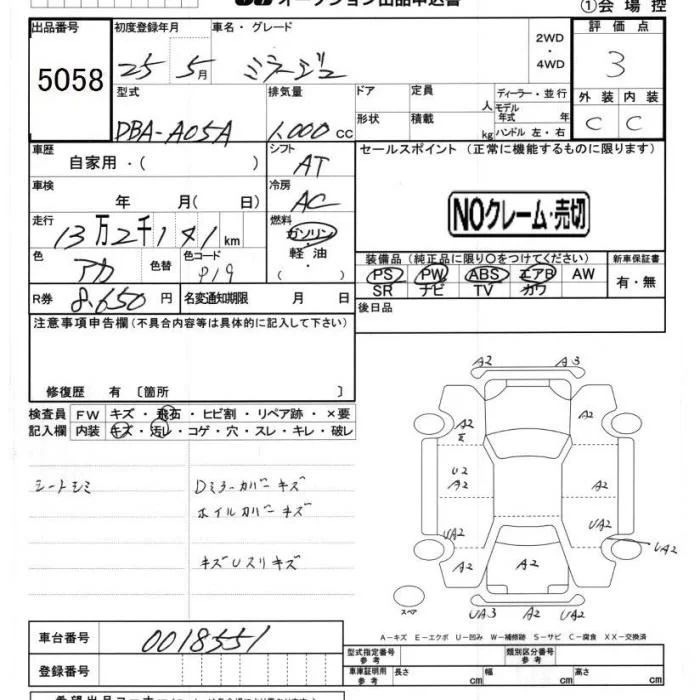 オークション出品申込書
①会場控
出品番号 初度登録年月 車名・グレード 2WD・4WD 評価点
5058 25 5月 ミラージュ 3
型式 排気量 ドア 定員 人 ディーラー・並行 外装 内装
DBA-A05A 1,000cc 形状 積載 kg モデル年式 年 ハンドル 左・右 C C
車歴 自家用・( ) シフト AT セールスポイント(正常に機能するものに限ります)
車検 年 月( 日) 冷房 AC
NOクレーム・売切
走行 13万2千141km 燃料 ガソリン・軽油・
装備品(純正品に限り〇をつけてください) 新車保証書
色 アカ 色替 色コード P19
PS PW ABS エアB AW 有・無
SR ナビ TV カワ
R券 8,650円 名変通知期限 月 日 後日品
注意事項申告欄(不具合内容等は具体的に記入して下さい)
修復歴 有 〔箇所 〕
検査員 FW キズ・飛石・ヒビ割・リペア跡・×要
記入欄 内装 キズ・汚レ・コゲ・穴・スレ・キレ・破レ
シートシミ Dミラーカバーキズ
ホイルカバーキズ
キズUスリキズ
A2 A3
A2 A2
E
U2
A2 A2
UA2 UA2 UA2
A2 A2 A2
スペア UA3 A2 UA2
A-キズ E-エクボ U-凹み W-補修跡 S-サビ C-腐食 XX-交換済
車台番号 0018551
型式指定番号 参考 類別区分番号 参考
登録番号 車庫証明用 参考 長さ cm 幅 cm 高さ cm